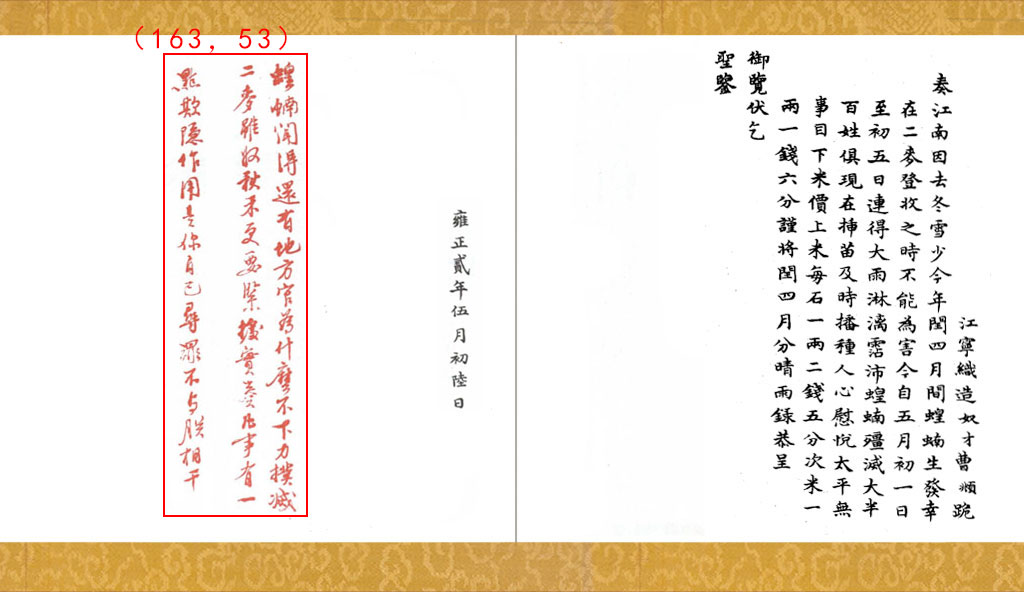 江寧織造奴才曹頫跪
奏江南因去冬雪少今年閏四月間蝗蝻生發幸
在二麥登收之時不能為害今自五月初一日
至初五日連得大雨淋漓霑沛蝗蝻殭滅大半
百姓俱現在揷苗及時播種人心慰悅太平無
事目下米價上米每石一兩二錢五分次米一
兩一錢六分謹將閏四月分晴雨録恭呈
御覽伏乞
聖鑒
雍正貳年伍月初陸日
（163, 53）
蝗蝻聞得還有地方官為什麼不下力撲滅
二麥雖收秋禾更要緊據實奏凡事有一
點欺隱作用是你自己尋罪不与朕相干